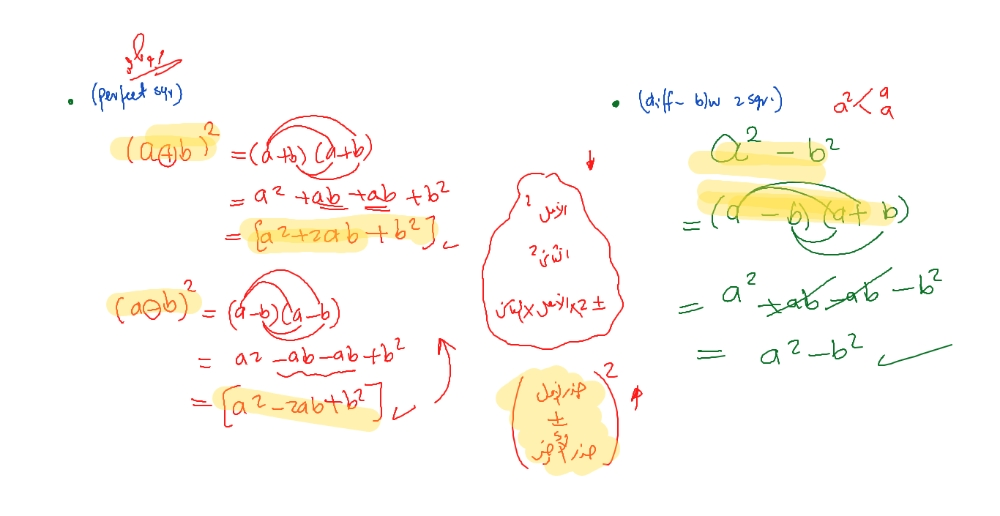 • (perfect sqr)
(a+b)² = (a+b)(a+b)
= a² + ab + ab + b²
= [a²+2ab+b²]
(a-b)² = (a-b)(a-b)
= a² -ab-ab+b²
= [a²-2ab+b²]
الأول ²
الثاني ²
± 2x الأول x الثاني
(جذر الأول
±
جذر)²
• (diff- b/w 2 sqr.) a² < a a
a² - b²
= (a - b)(a + b)
= a² +ab-ab - b²
= a²-b²